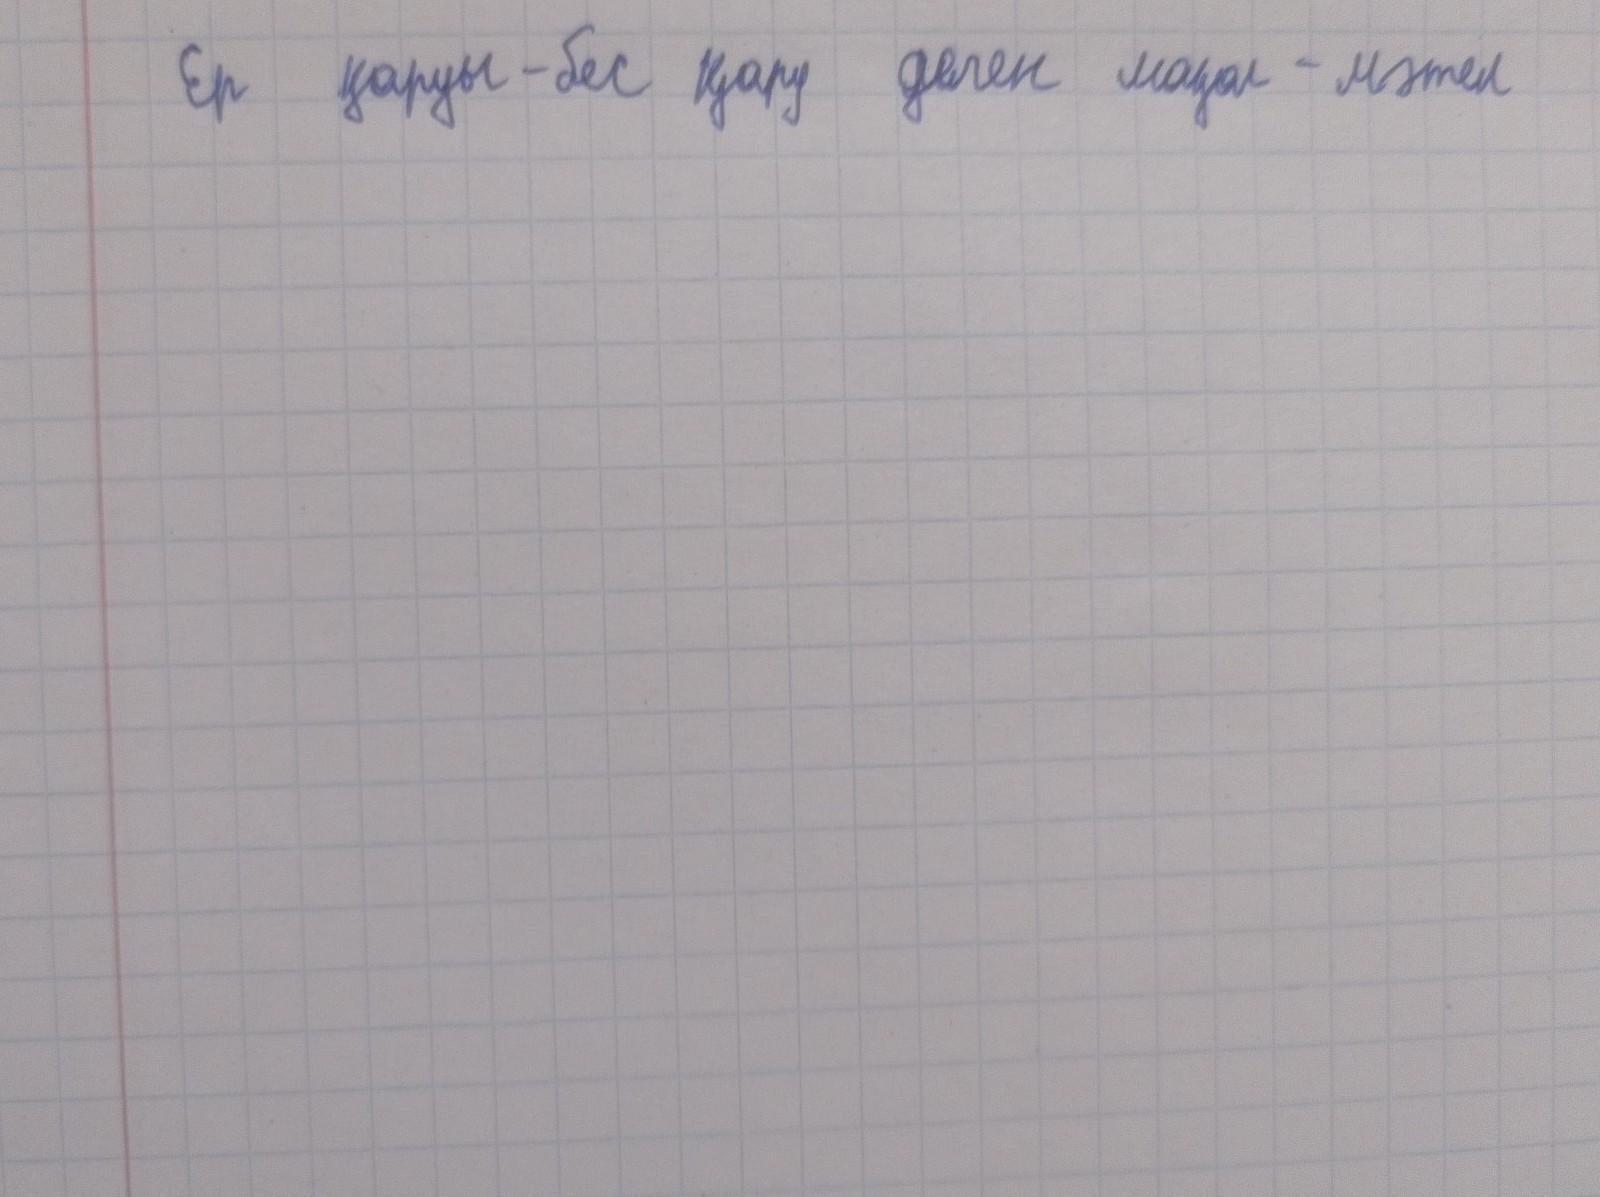 Ер қаруы - бес қару деген мақал - мәтел